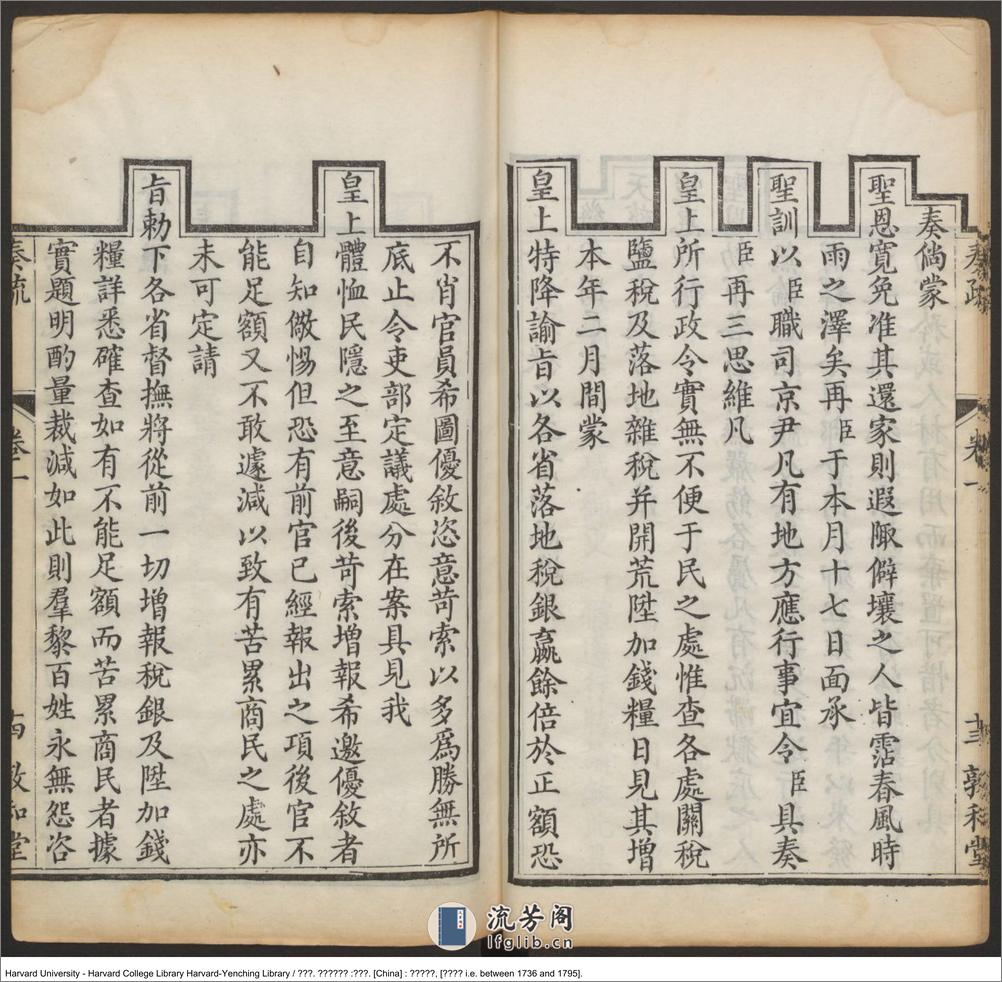 奏疏 卷一 十三 敦和堂
奏倘蒙
聖恩寬免准其還家則遐陬僻壤之人皆霑春風時
雨之澤矣再臣于本月十七日面承
聖訓以臣職司京尹凡有地方應行事宜令臣具奏
臣再三思維凡
皇上所行政令實無不便于民之處惟查各處關稅
鹽稅及落地雜稅并開荒陞加錢糧日見其增
本年二月間蒙
皇上特降諭旨以各省落地稅銀嬴餘倍於正額恐
不肖官員希圖優敘恣意苛索以多爲勝無所
底止令吏部定議處分在案具見我
皇上體恤民隱之至意嗣後苛索增報希邀優敘者
自知儆惕但恐有前官已經報出之項後官不
能足額又不敢遽減以致有苦累商民之處亦
未可定請
旨勅下各省督撫將從前一切增報稅銀及陞加錢
糧詳悉確查如有不能足額而苦累商民者據
實題明酌量裁減如此則羣黎百姓永無怨咨
奏疏 卷一 敦和堂
流芳阁
lfglib.cn
Harvard University - Harvard College Library Harvard-Yenching Library / ???. ?????? :???. [China] : ?????, [???? i.e. between 1736 and 1795].